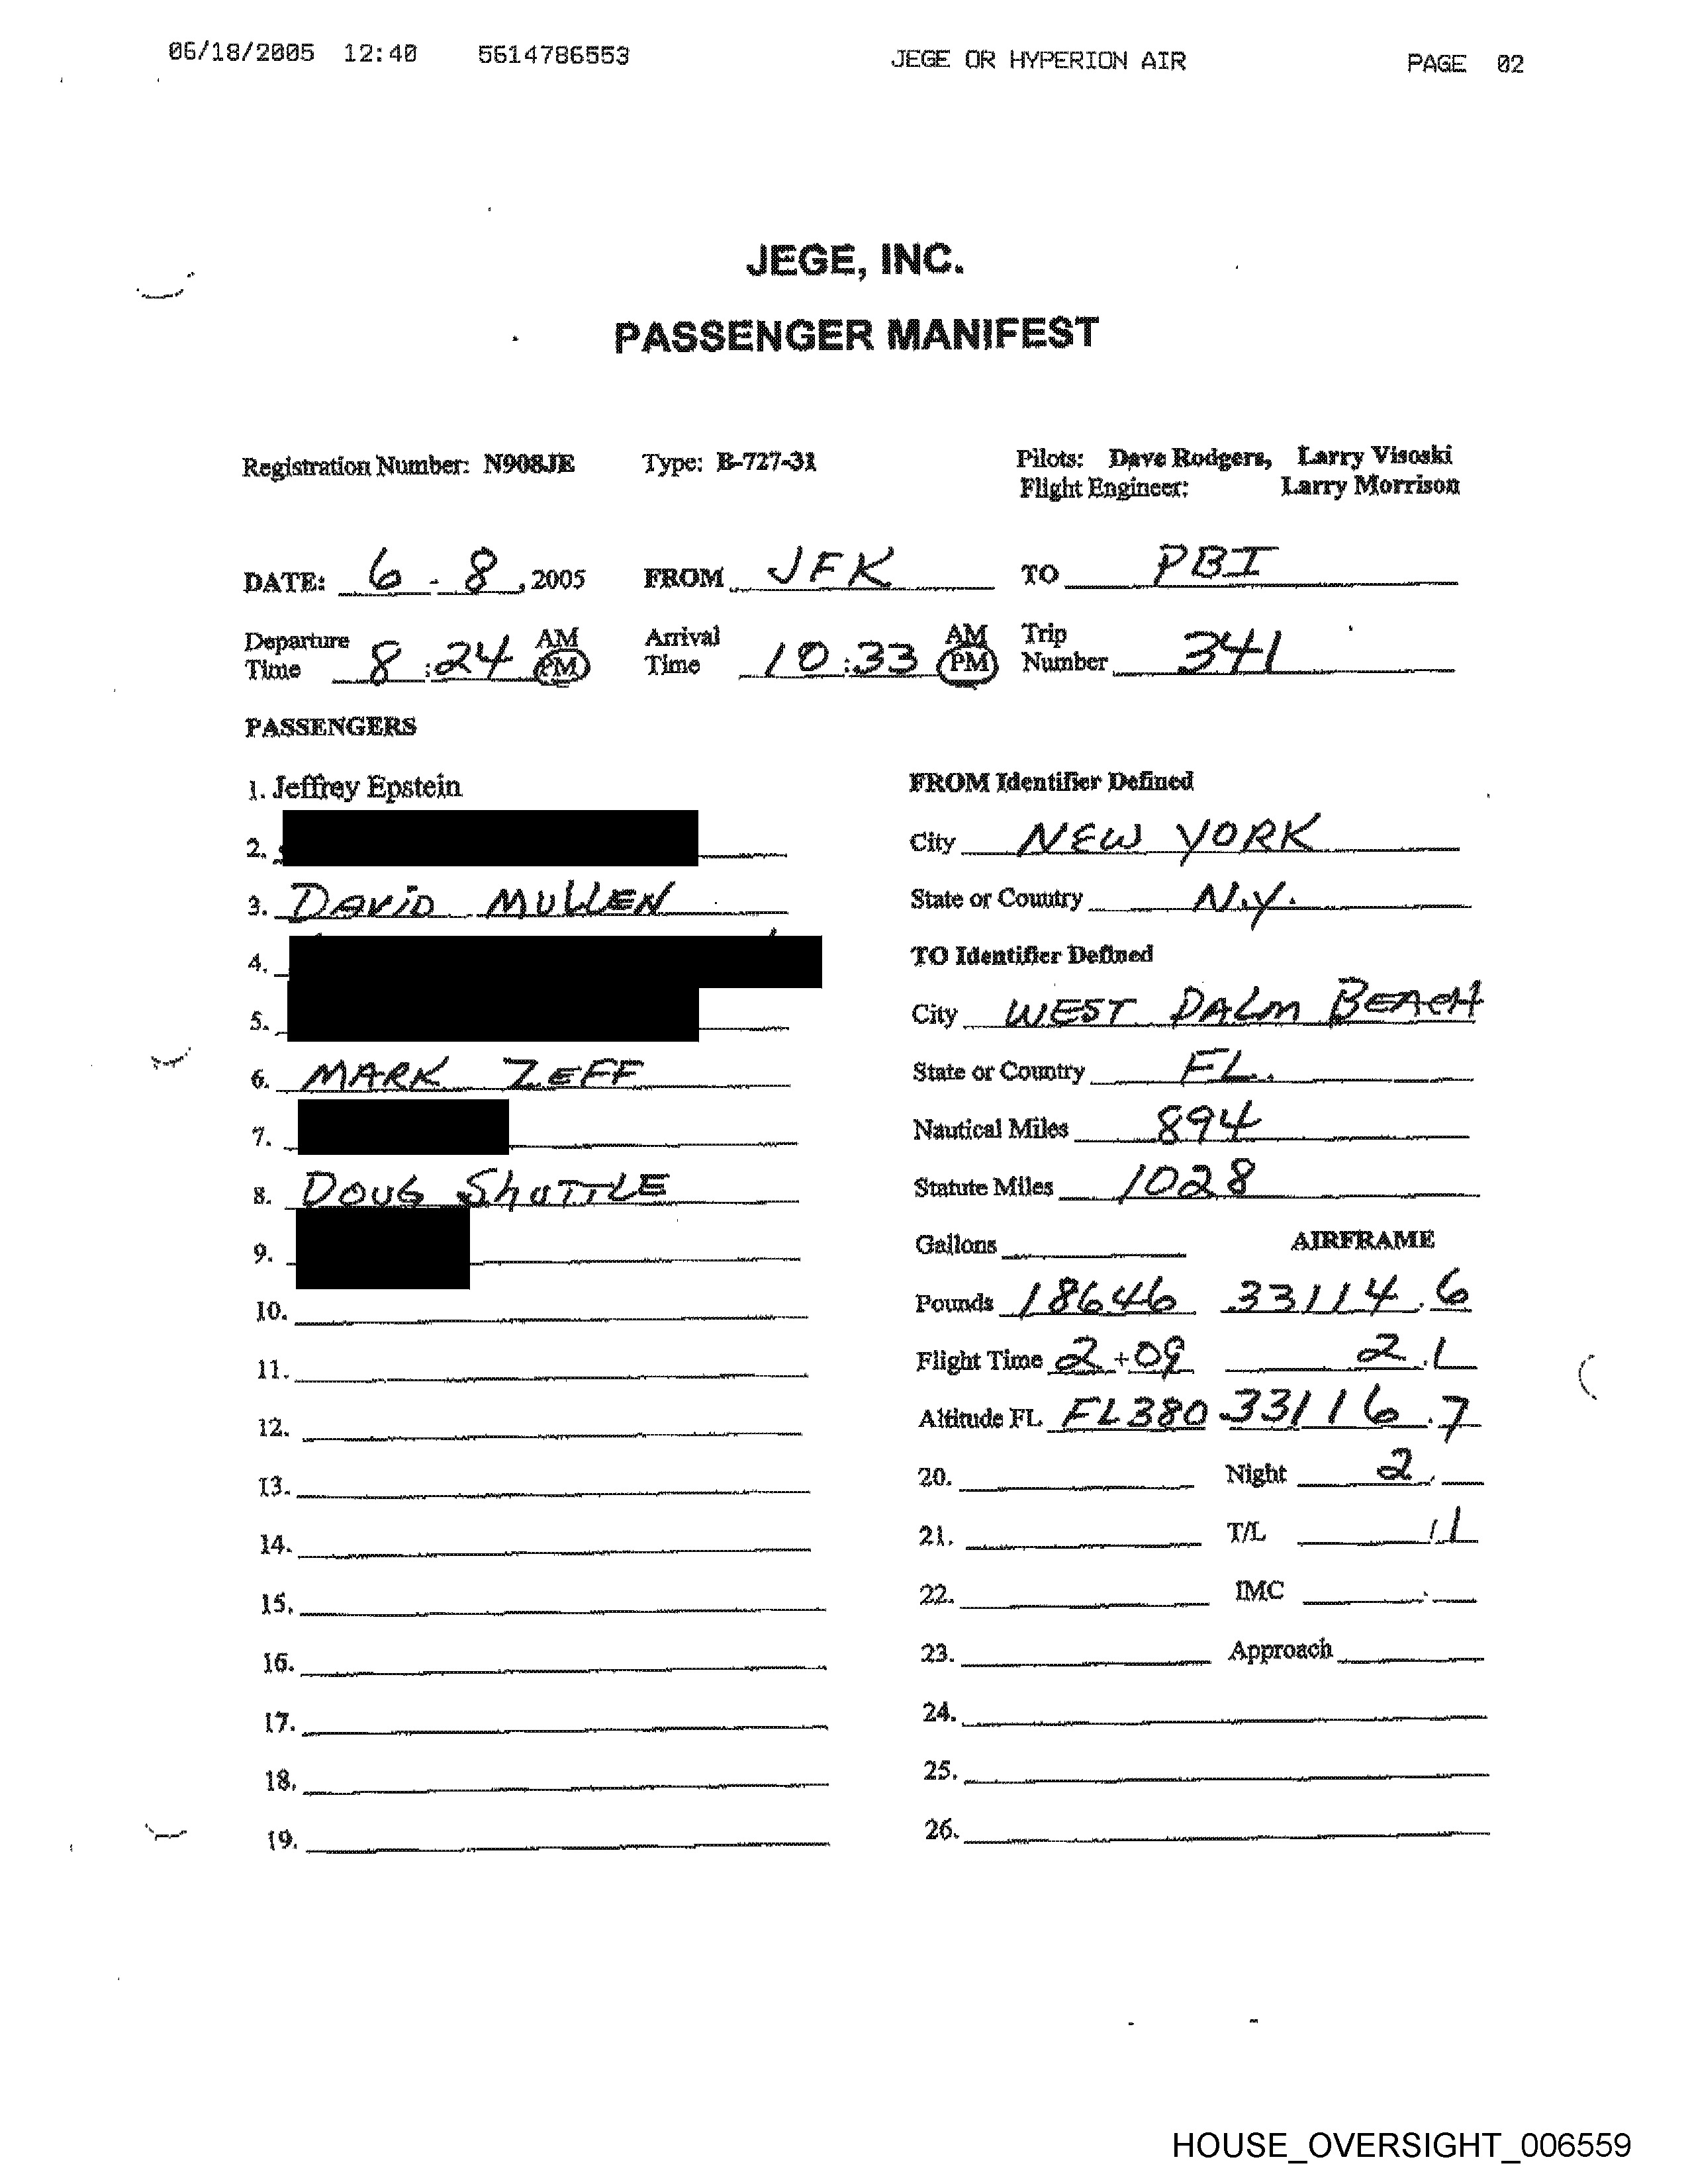 06/18/2005 12:40 5614786553 JEGE OR HYPERION AIR PAGE 02
JEGE, INC.
PASSENGER MANIFEST
Registration Number: N908JE Type: B-727-31 Pilots: Dave Rodgers, Larry Visoski
Flight Engineer: Larry Morrison
DATE: 6 - 8, 2005 FROM JFK TO PBI
Departure Time 8:24 AM PM Arrival Time 10:33 AM PM Trip Number 341
PASSENGERS
1. Jeffrey Epstein
2.
3. DAVID MULLEN
4.
5.
6. MARK ZEFF
7.
8. DOUG ShUTTLE
9.
10.
11.
12.
13.
14.
15.
16.
17.
18.
19.
FROM Identifier Defined
City NEW YORK
State or Country N.Y.
TO Identifier Defined
City WEST PALM BEACH
State or Country FL.
Nautical Miles 894
Statute Miles 1028
Gallons AIRFRAME
Pounds 18646 33114.6
Flight Time 2+09 2.1
Altitude FL FL380 33116.7
20. Night 2.
21. T/L 1
22. IMC
23. Approach
24.
25.
26.
HOUSE_OVERSIGHT_006559